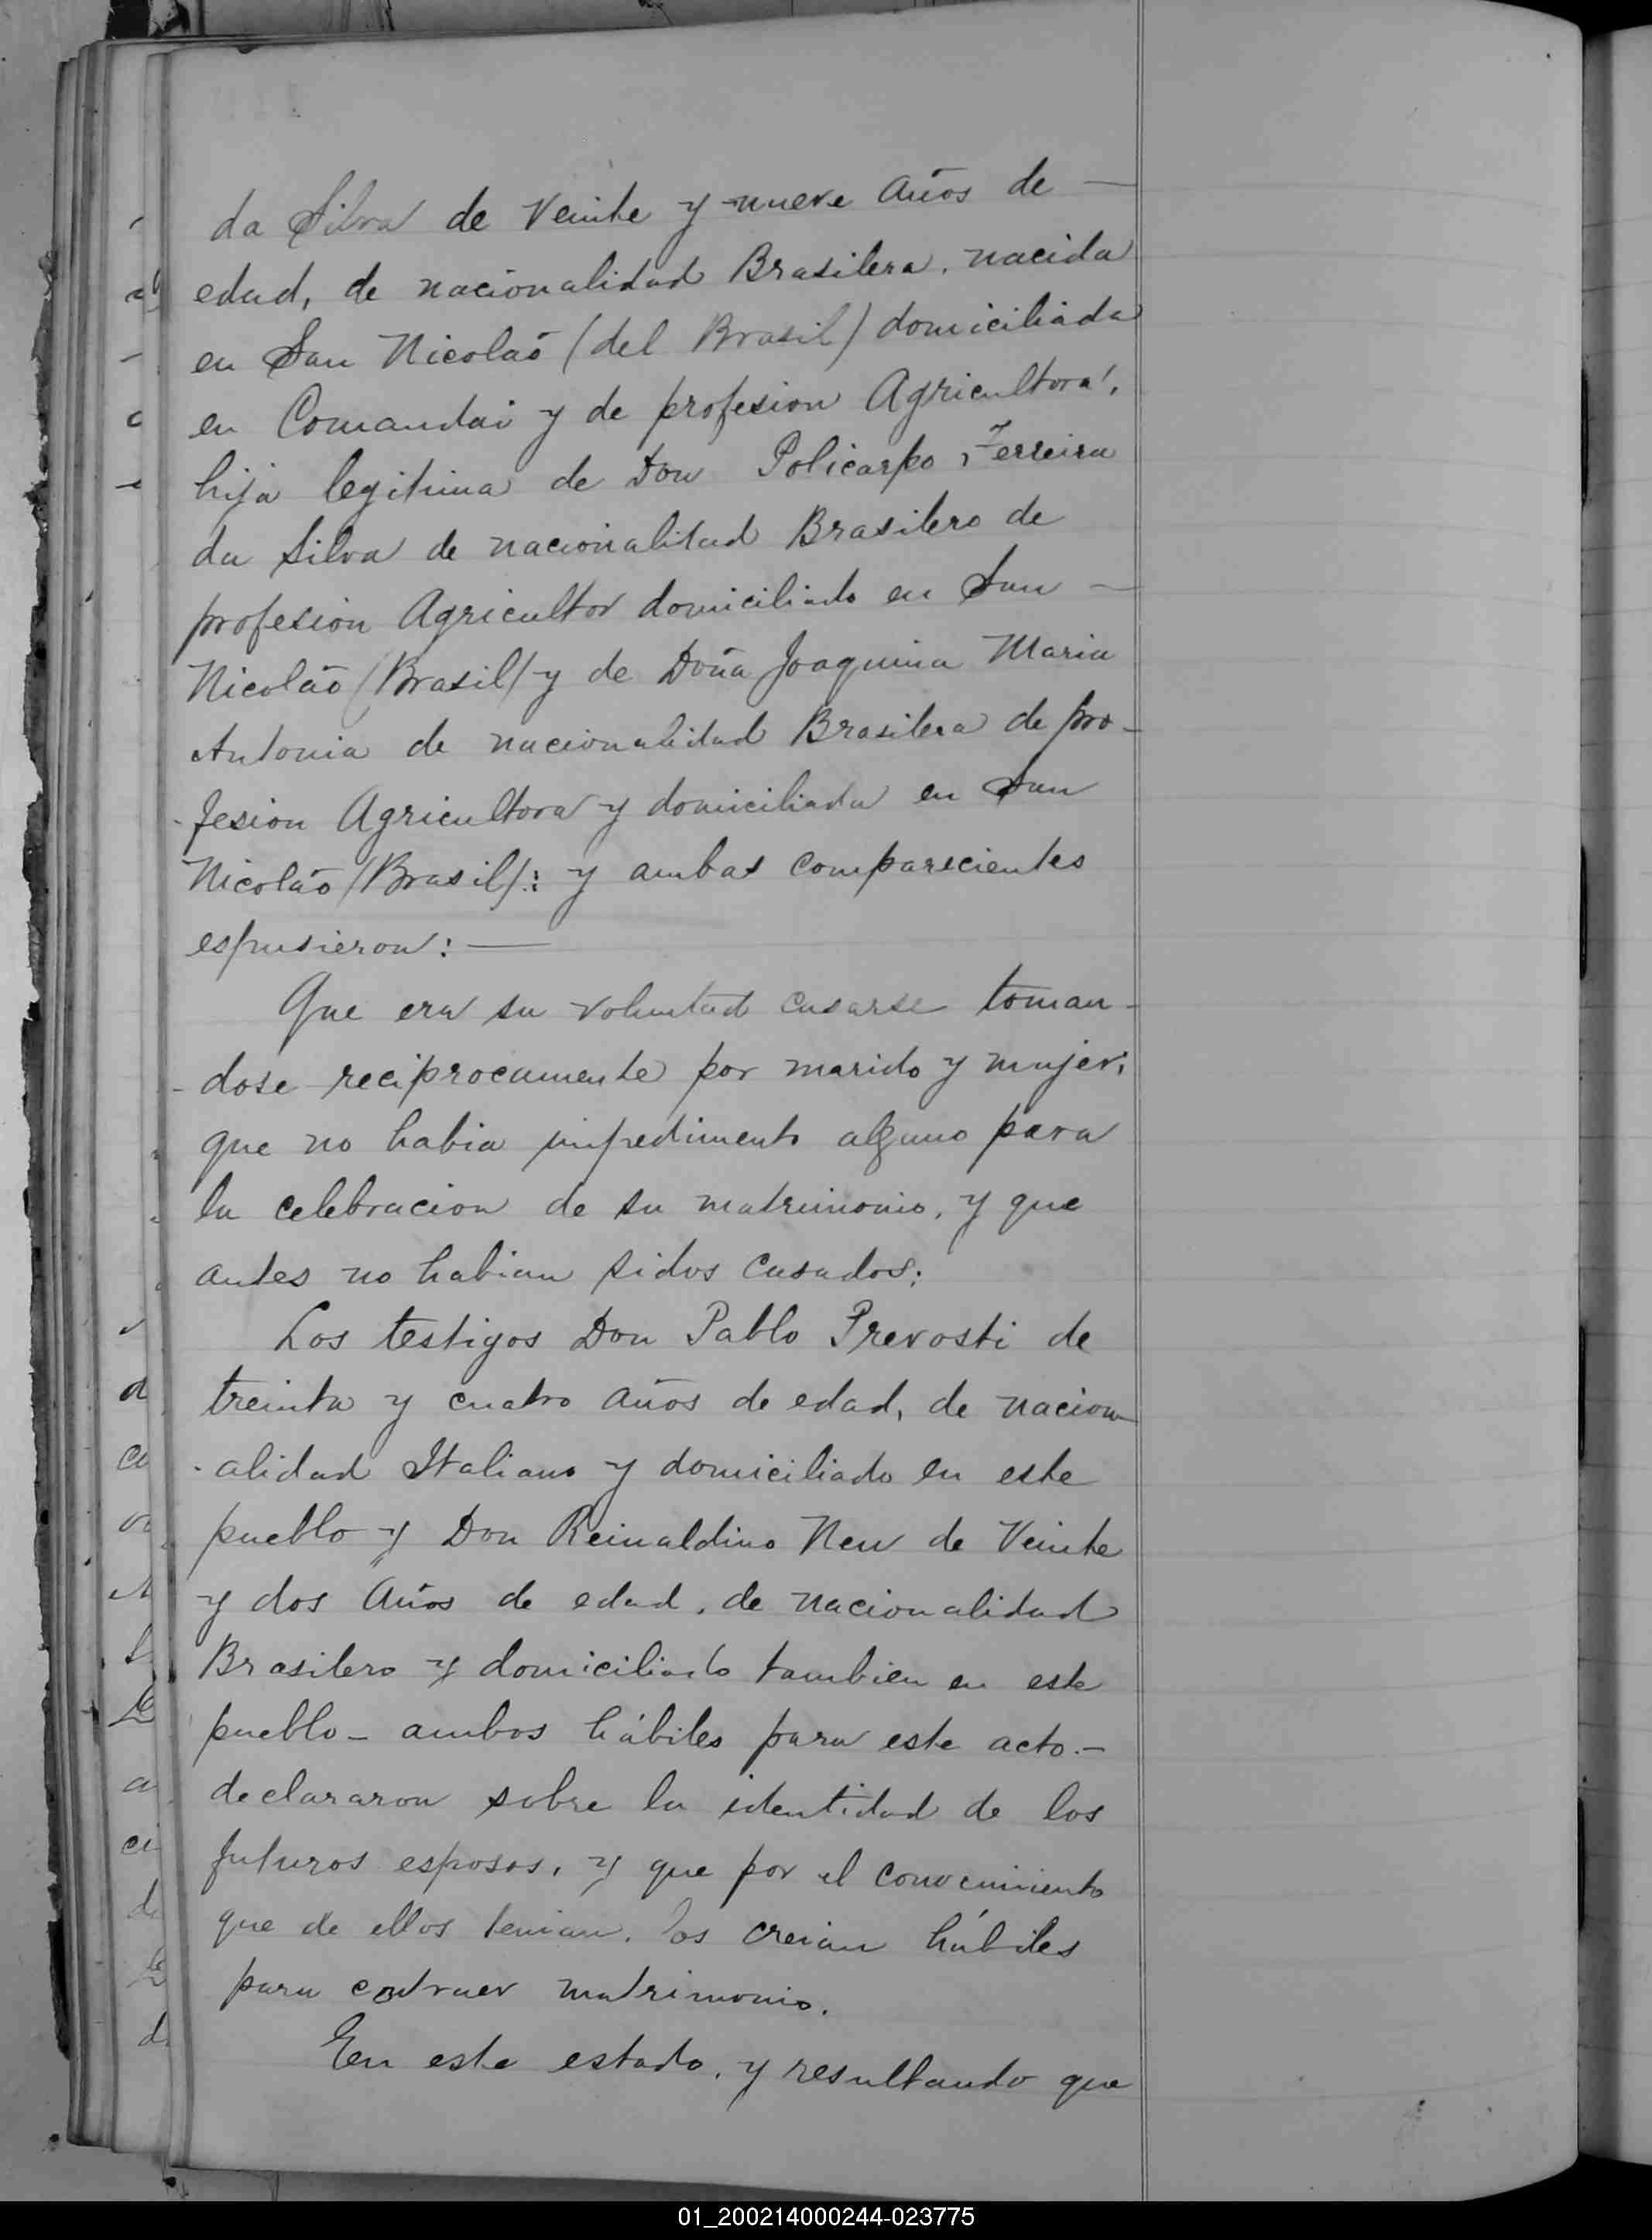 da Silva de Veinte y nueve años de —
edad, de nacionalidad Brasilera, nacida
en San Nicoláo (del Brasil) domiciliada
en Comandai y de profesion Agricultora,
hija legitima de Don Policarpo Ferreira
da Silva de nacionalidad Brasilero de
profesion Agricultor domiciliado en San —
Nicoláo (Brasil) y de Doña Joaquina Maria
Antonia de nacionalidad Brasilera de pro-
-fesion Agricultora y domiciliada en San
Nicoláo (Brasil): y ambas comparecientes
espusieron: —
Que era su voluntad casarse toman-
-dose reciprocamente por marido y mujer;
que no habia impedimento alguno para
la celebracion de su matrimonio, y que
antes no habian sidos casados;
Los testigos Don Pablo Prevosti de
treinta y cuatro años de edad, de nacion-
-alidad Italiano y domiciliado en este
pueblo y Don Reinaldino Neu de Veinte
y dos años de edad, de nacionalidad
Brasilero y domiciliado tambien en este
pueblo - ambos hábiles para este acto. -
declararon sobre la identidad de los
futuros esposos, y que por el conocimiento
que de ellos tenian, los creian hábiles
para contraer matrimonio.
En este estado, y resultando que
01_200214000244-023775